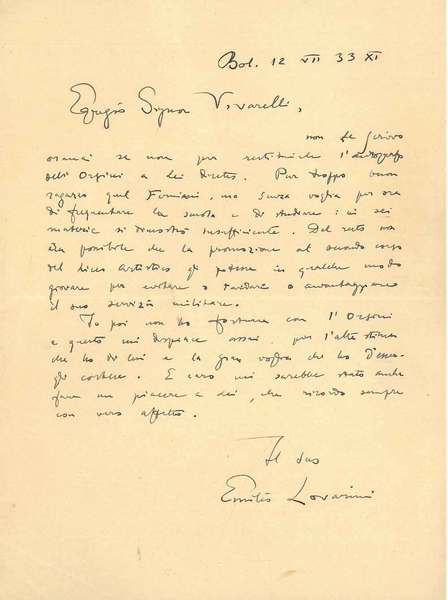 Bol. 12 VII 33 XI
Egregio Signor Vivarelli,
non le scrivo
oramai se non per restituirle l'autografo
dell'Orsini a Lei diretto. Pur troppo buon
ragazzo quel Forniani, ma senza voglia per ora
di frequentare la scuola e di studiare: in sei
materie si dimostrò insufficiente. Del resto non
era possibile che la promozione al secondo corso
del liceo artistico gli potesse in qualche modo
giovare per evitare o ritardare o avvantaggiare
il suo servizio militare.
Io poi non ho fortuna con l'Orsini
e questo mi dispiace assai per l'alta stima
che ho di lui e la gran voglia che ho d'esser
gli cortese. E caro mi sarebbe stato anche
fare un piacere a Lei, che ricordo sempre
con vero affetto.
Il suo
Emilio Lovarini